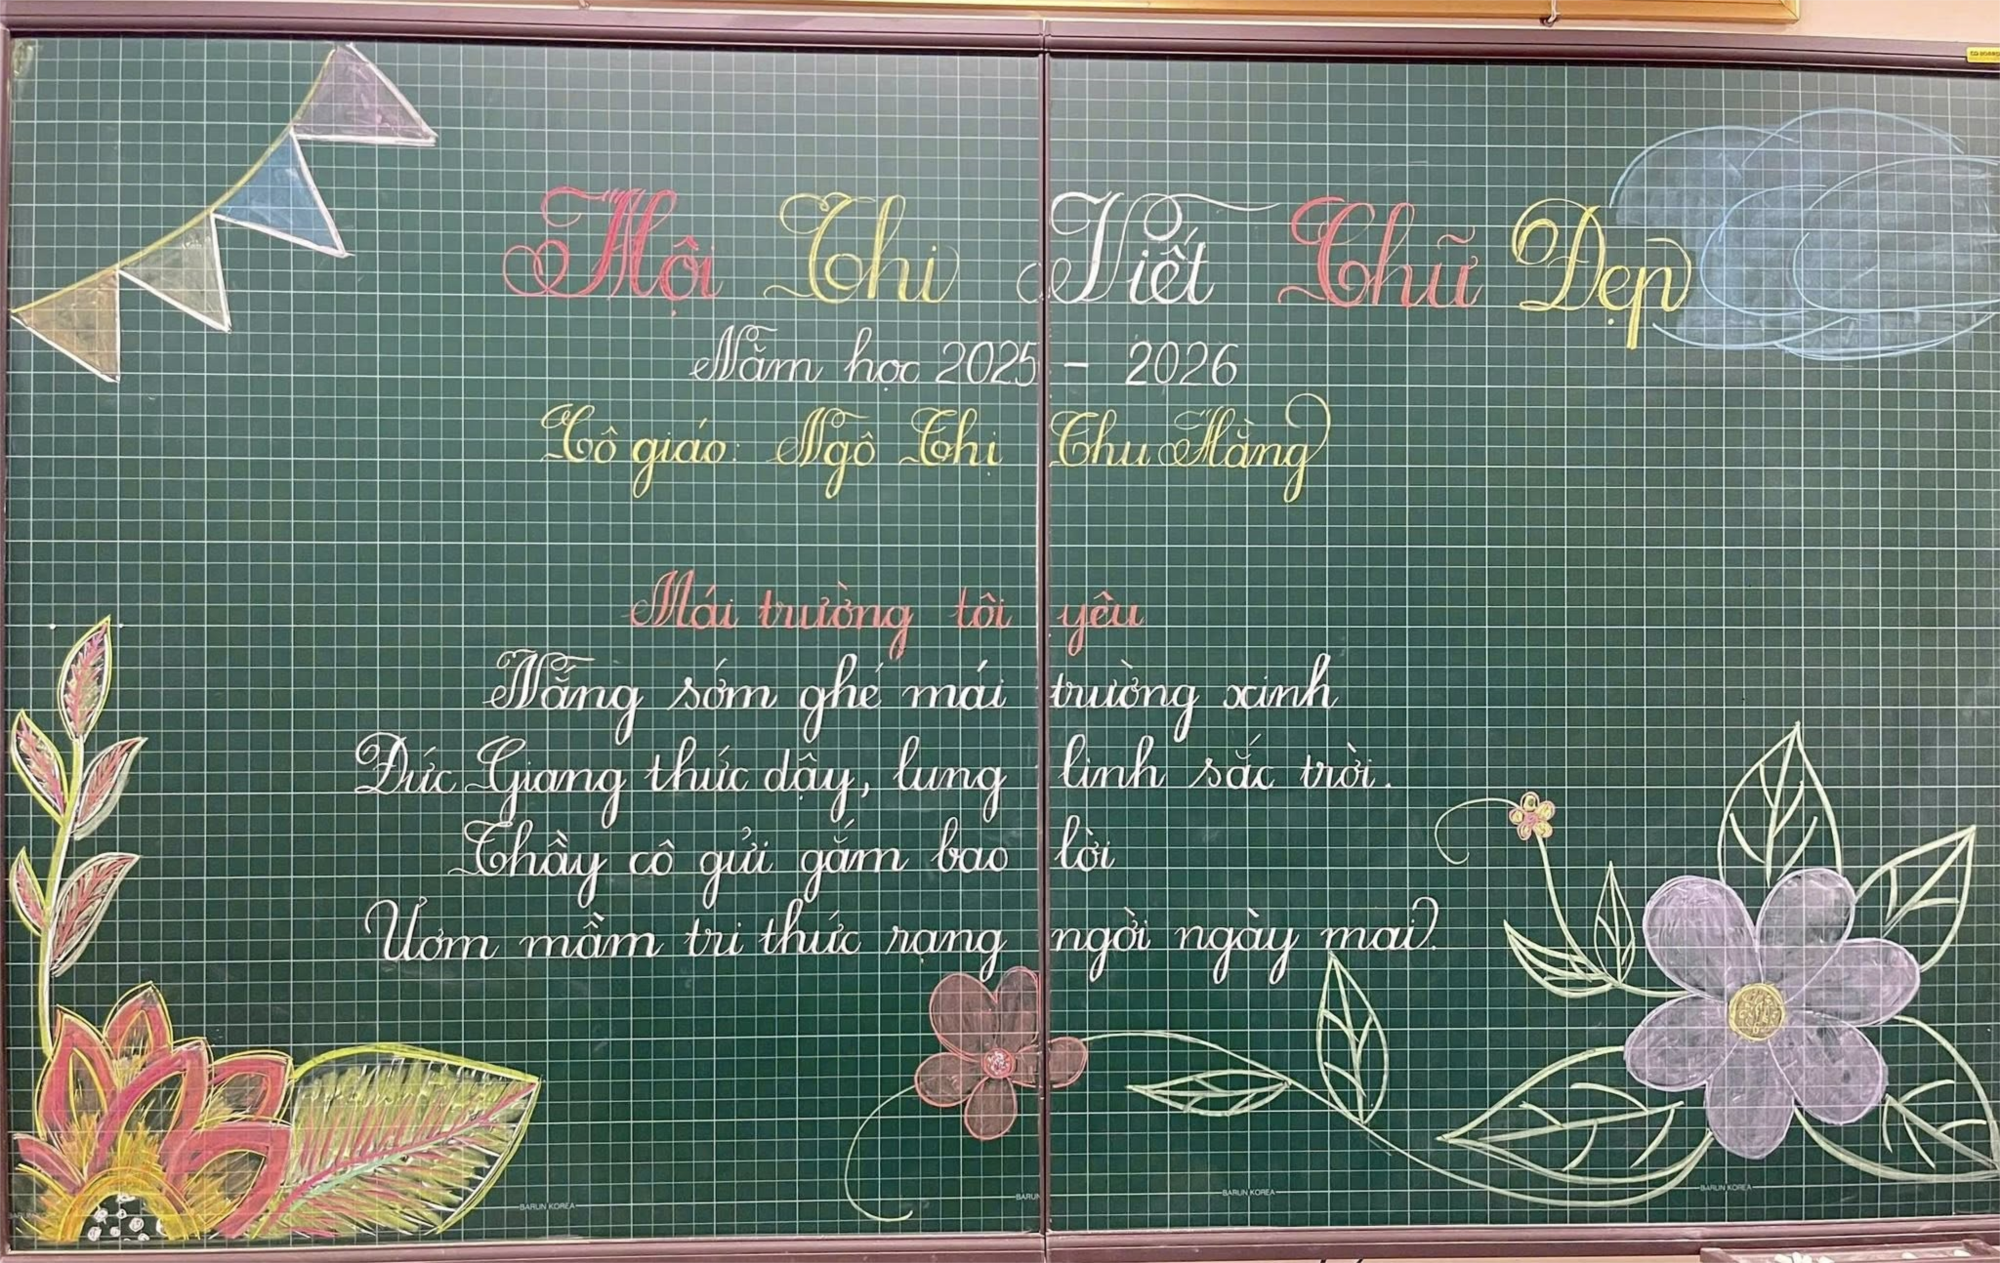 Hội Thi Viết Chữ Đẹp
Năm học 2025 - 2026
Cô giáo: Ngô Thị Thu Hằng
Mái trường tôi yêu
Nắng sớm ghé mái trường xinh
Đức Giang thức dậy, lung linh sắc trời.
Thầy cô gửi gắm bao lời
Ươm mầm tri thức rạng ngời ngày mai.
BARUN KOREA
BARUN KOREA
BARUN KOREA